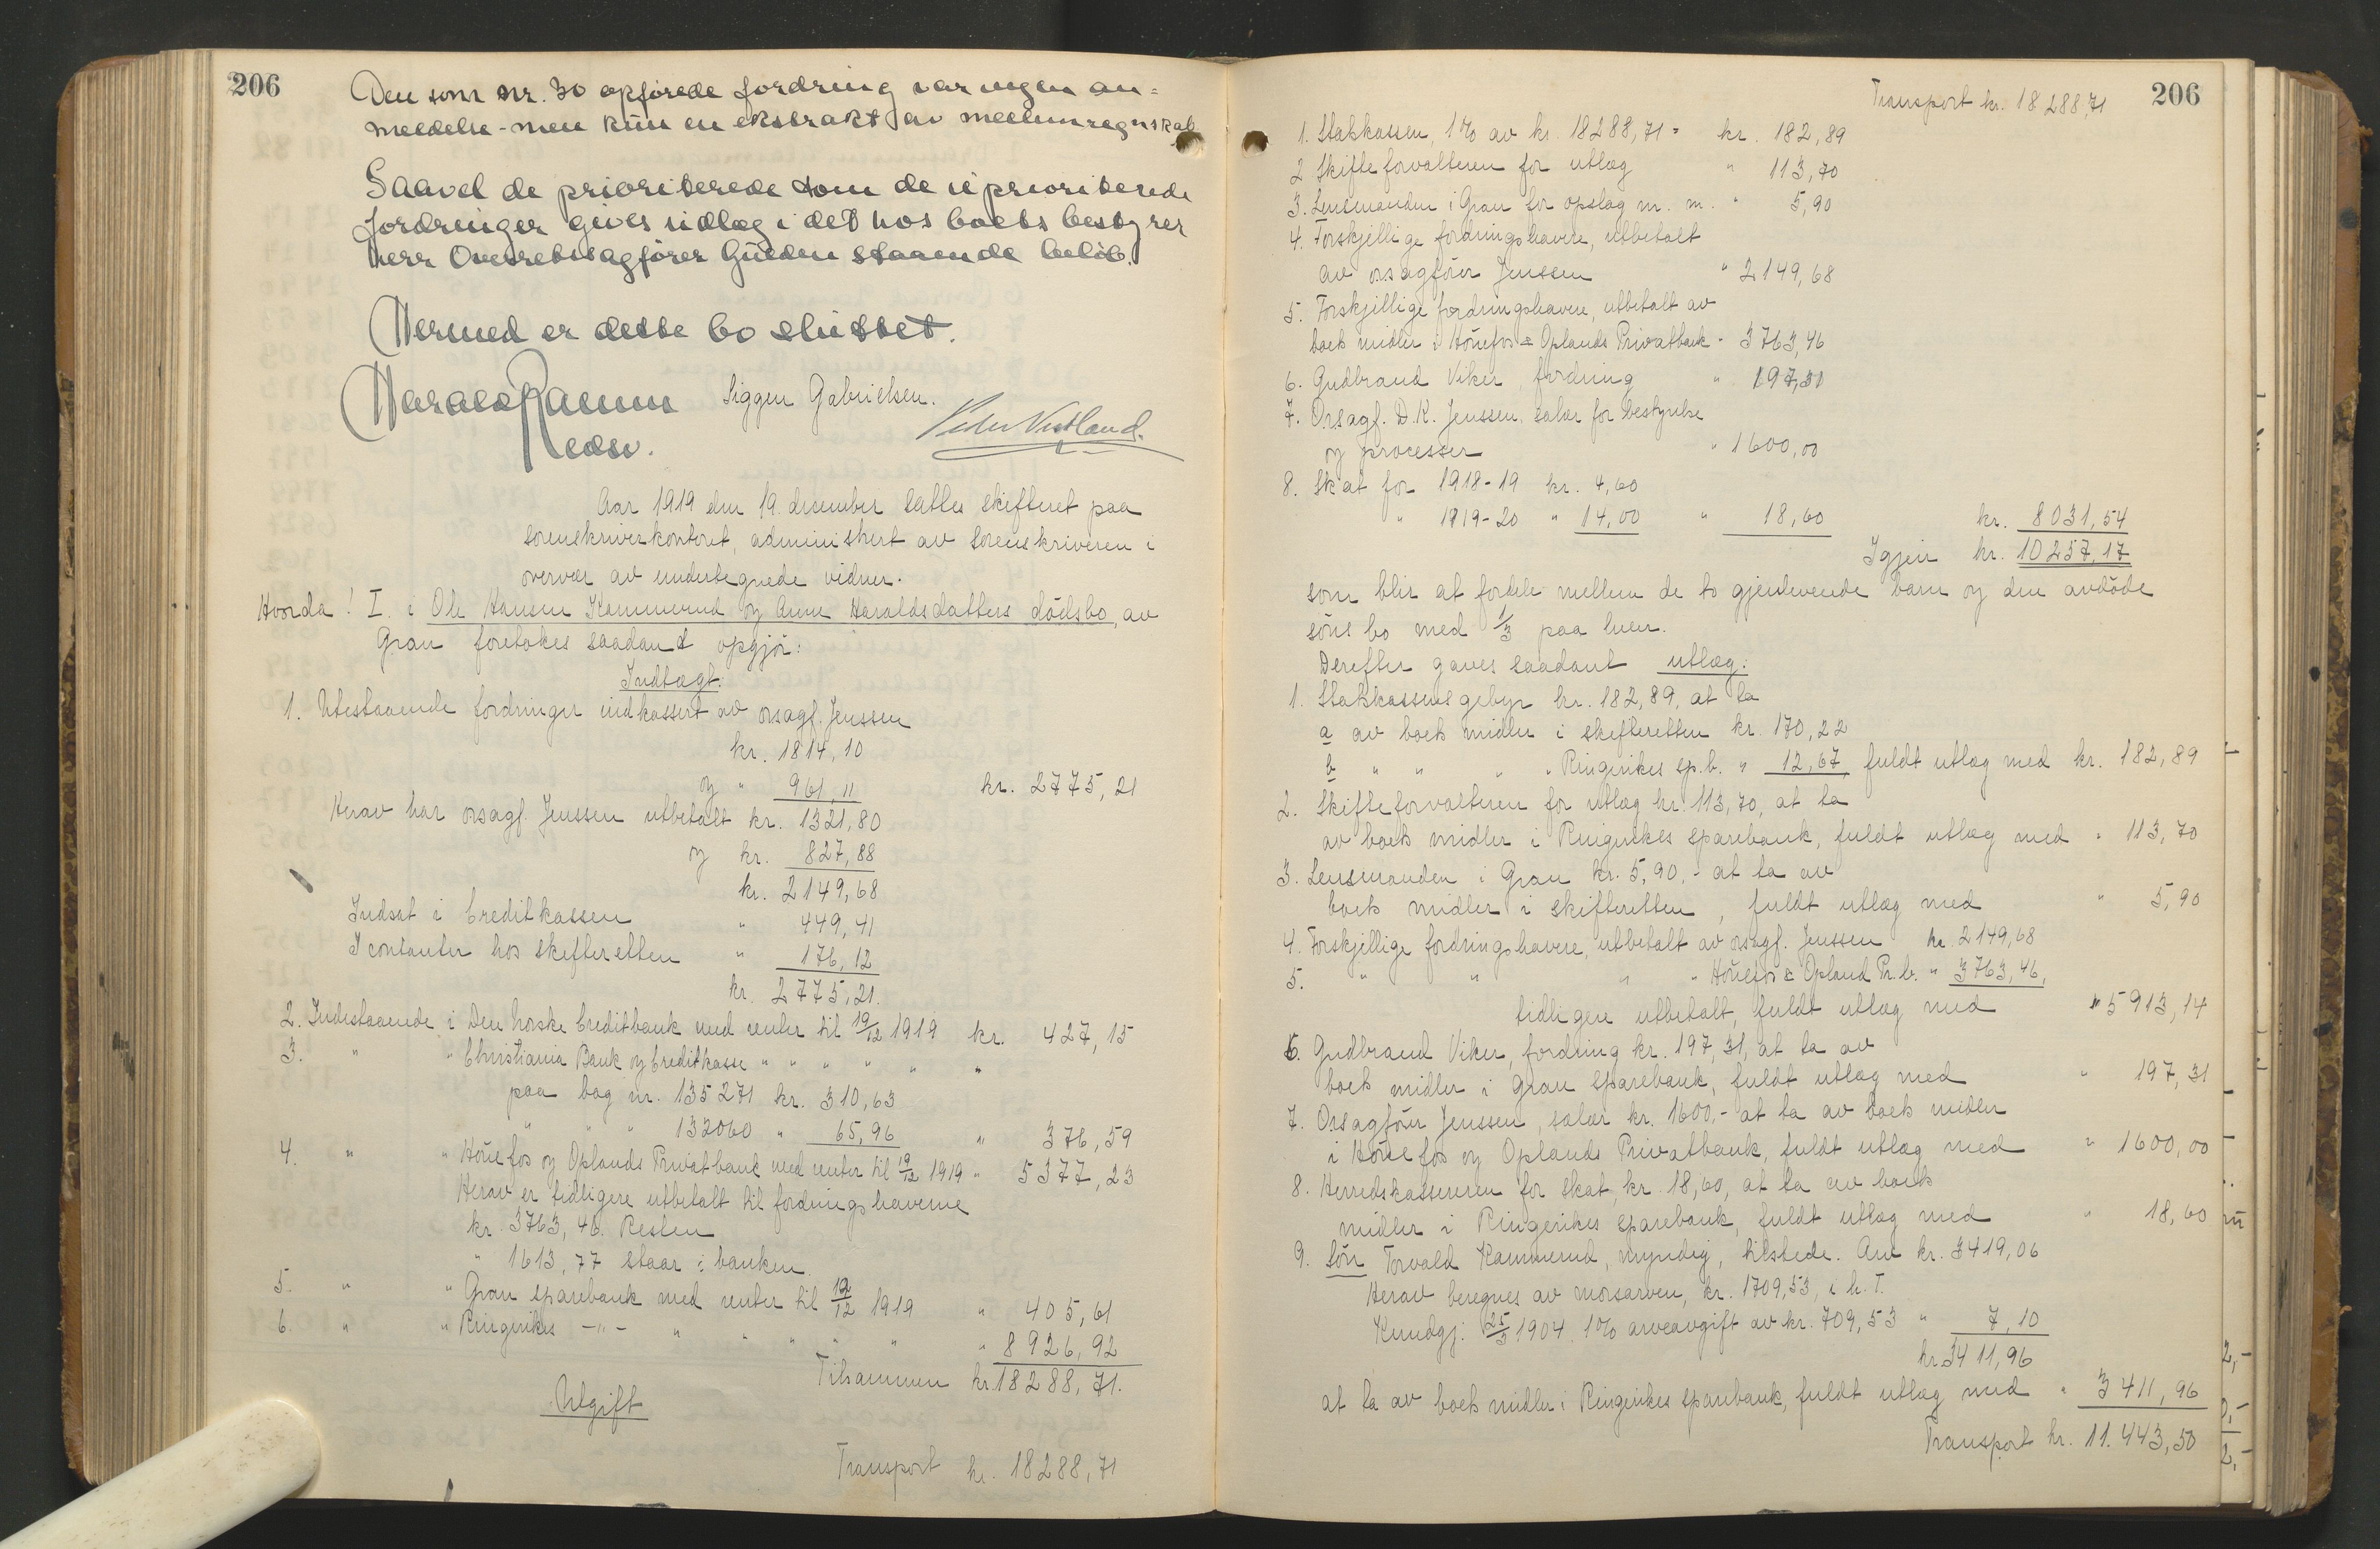 206
Den som nr. 30 opførede fordring var ingen an=
meldelse - men kun en ekstrakt av mellemregnskab
Saavel de prioriterede som de uprioriterede
fordringer gives utlæg i det hos boets bestyrer
herr Overretssagfører Gulden staaende beløb.
Hermed er dette bo sluttet.
Harald Ramm Siggen Gabrielsen.
Peter Vestland.
edsv.
Aar 1919 den 19. december sattes skifteret paa
sorenskriverkontoret, administrert av sorenskriveren i
overvær av undertegnede vidner.
Hvorda! I. i Ole Hansen Kammerud og Anne Haraldsdatters dödsbo, av
Gran foretokes saadant opgjör:
Indtægt:
1. Utestaaende fordringer indkassert av orsagf. Jenssen
kr. 1814,10
og " 961,11 kr. 2775,21
Herav har orsagf. Jenssen utbetalt kr. 1321,80
og kr. 827,88
kr. 2149,68
Indsat i Creditkassen " 449,41
I contanter hos skifteretten " 176,12
kr. 2775,21.
2. Indestaaende i Den norske Creditbank med renter til 19/12 1919 kr. 427,15
3. " " Christiania Bank og Creditkasse " " " " " "
paa bog nr. 135271 kr. 310,63
" " " 132060 " 65,96 " 376,59
4. " " Hönefos og Oplands Privatbank med renter til 19/12 1919 " 5377,23
Herav er tidligere utbetalt til fordringshaverne
kr. 3763,46. Resten
" 1613,77 staar i banken.
5. " " Gran sparebank med renter til 19/12 1919 " 405,61
6. " " Ringerikes -"- " " " " " " 8926,92
Tilsammen kr. 18288,71.
Utgift
Transport kr. 18288,71
206
Transport kr. 18288,71
1. Statskassen, 1% av kr. 18288,71 = kr. 182,89
2 Skifteforvalteren for utlæg " 113,70
3. Lensmanden i Gran for opslag m. m. " 5,90
4. Forskjellige fordringshavere, utbetalt
av orsagförer Jenssen " 2149,68
5. Forskjellige fordringshavere, utbetalt av
boets midler i Hönefos & Oplands Privatbank " 3763,46
6. Gudbrand Viker, fordring " 197,31
7. Orsagf. D. K. Jenssen, salær for bestyrelse
og processer " 1600,00
8. Skat for 1918-19 kr. 4,60
" 1919-20 " 14,00 " 18,60 kr. 8031,54
Igjen kr. 10257,17
som blir at fordele mellem de to gjenlevende barn og den avdöde
söns bo med 1/3 paa hver.
Derefter gaves saadant utlæg:
1. Statskassens gebyr kr. 182,89, at ta
a av boets midler i skifteretten kr. 170,22
b " " " " Ringerikes sp.b. " 12,67, fuldt utlæg med kr. 182,89
2. Skifteforvalteren for utlæg kr. 113,70, at ta
av boets midler i Ringerikes sparebank, fuldt utlæg med " 113,70
3. Lensmanden i Gran kr. 5,90. - at ta av
boets midler i skifteretten, fuldt utlæg med " 5,90
4. Forskjellige fordringshavere, utbetalt av orsagf. Jenssen kr. 2149,68
5. " " " " Hönefos & Opland Pr.b. " 3763,46,
tidligere utbetalt, fuldt utlæg med " 5913,14
6. Gudbrand Viker, fordring kr. 197,31, at ta av
boets midler i Gran sparebank, fuldt utlæg med " 197,31
7. Orsagförer Jenssen, salær kr. 1600,- at ta av boets midler
i Hönefos og Oplands Privatbank, fuldt utlæg med " 1600,00
8. Herredskassereren for skat, kr. 18,60, at ta av boets
midler i Ringerikes sparebank, fuldt utlæg med " 18,60
9. Sön Torvald Kammerud, myndig, tilstede. Arv kr. 3419,06
Herav beregnes av morsarven, kr. 1709,53, i h. t.
Kundgj. 25/3 1904. 1% arveavgift av kr. 709,53 " 7,10
kr. 3411,96
at ta av boets midler i Ringerikes sparebank, fuldt utlæg med " 3411,96
Transport kr. 11.443,50